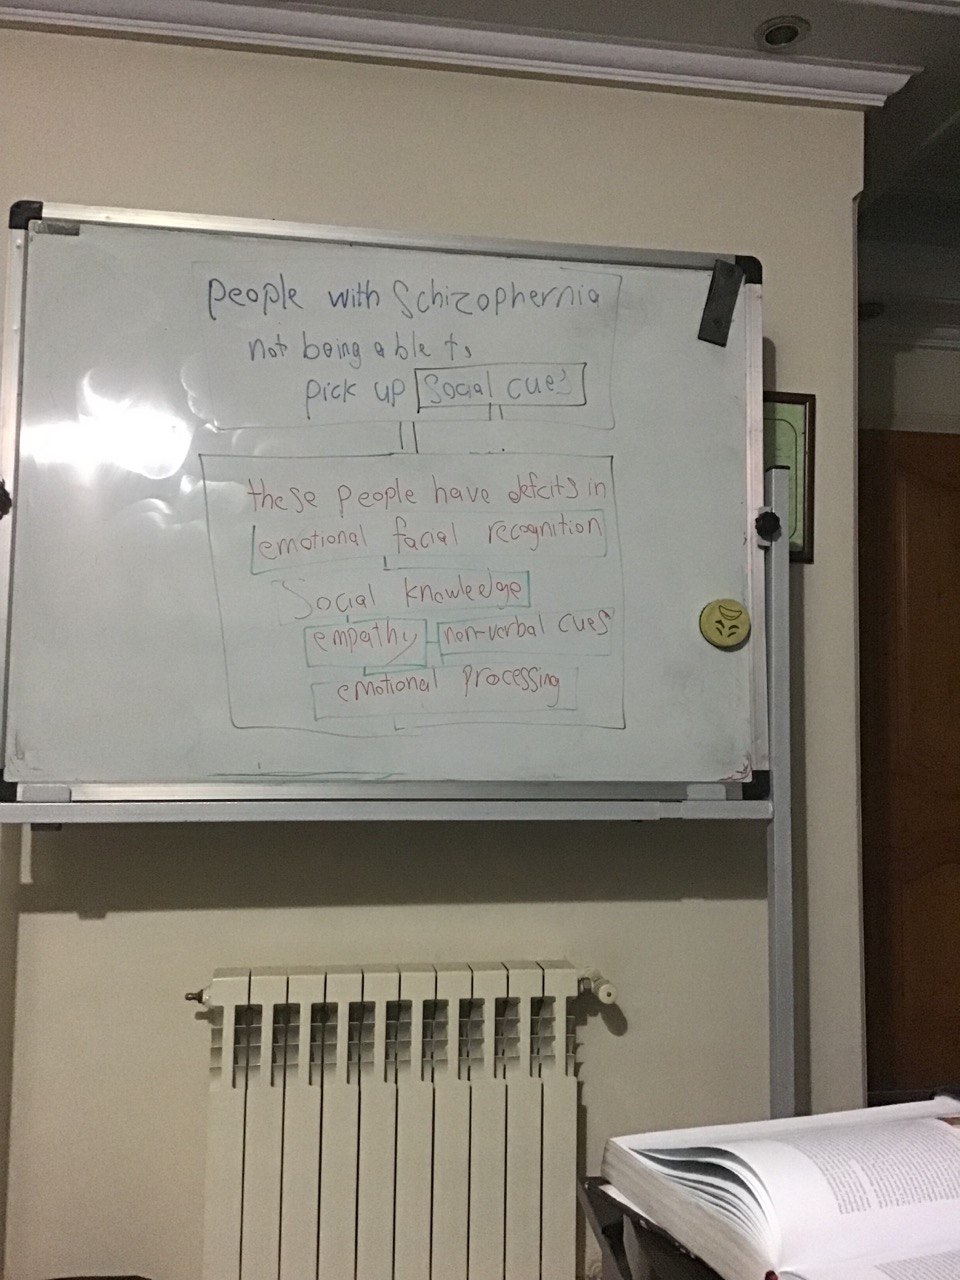 people with Schizophernia
not being able to
pick up Social cues
these people have defcits in
emotional facial recognition
Social knowledge
empathy non-verbal cues
emotional processing